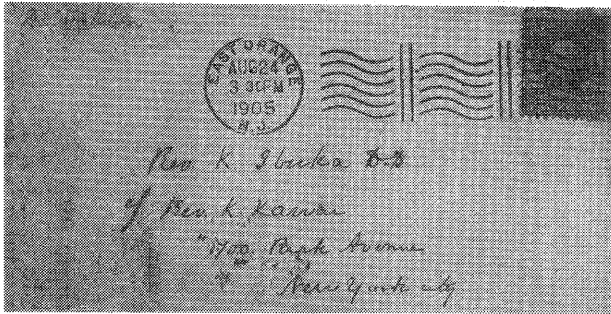 EAST ORANGE
AUG 24
3 30 PM
1905
N.J.
Rev K Ibuka D.D
c/ Rev. K. Kawai
1700 Park Avenue
New York city